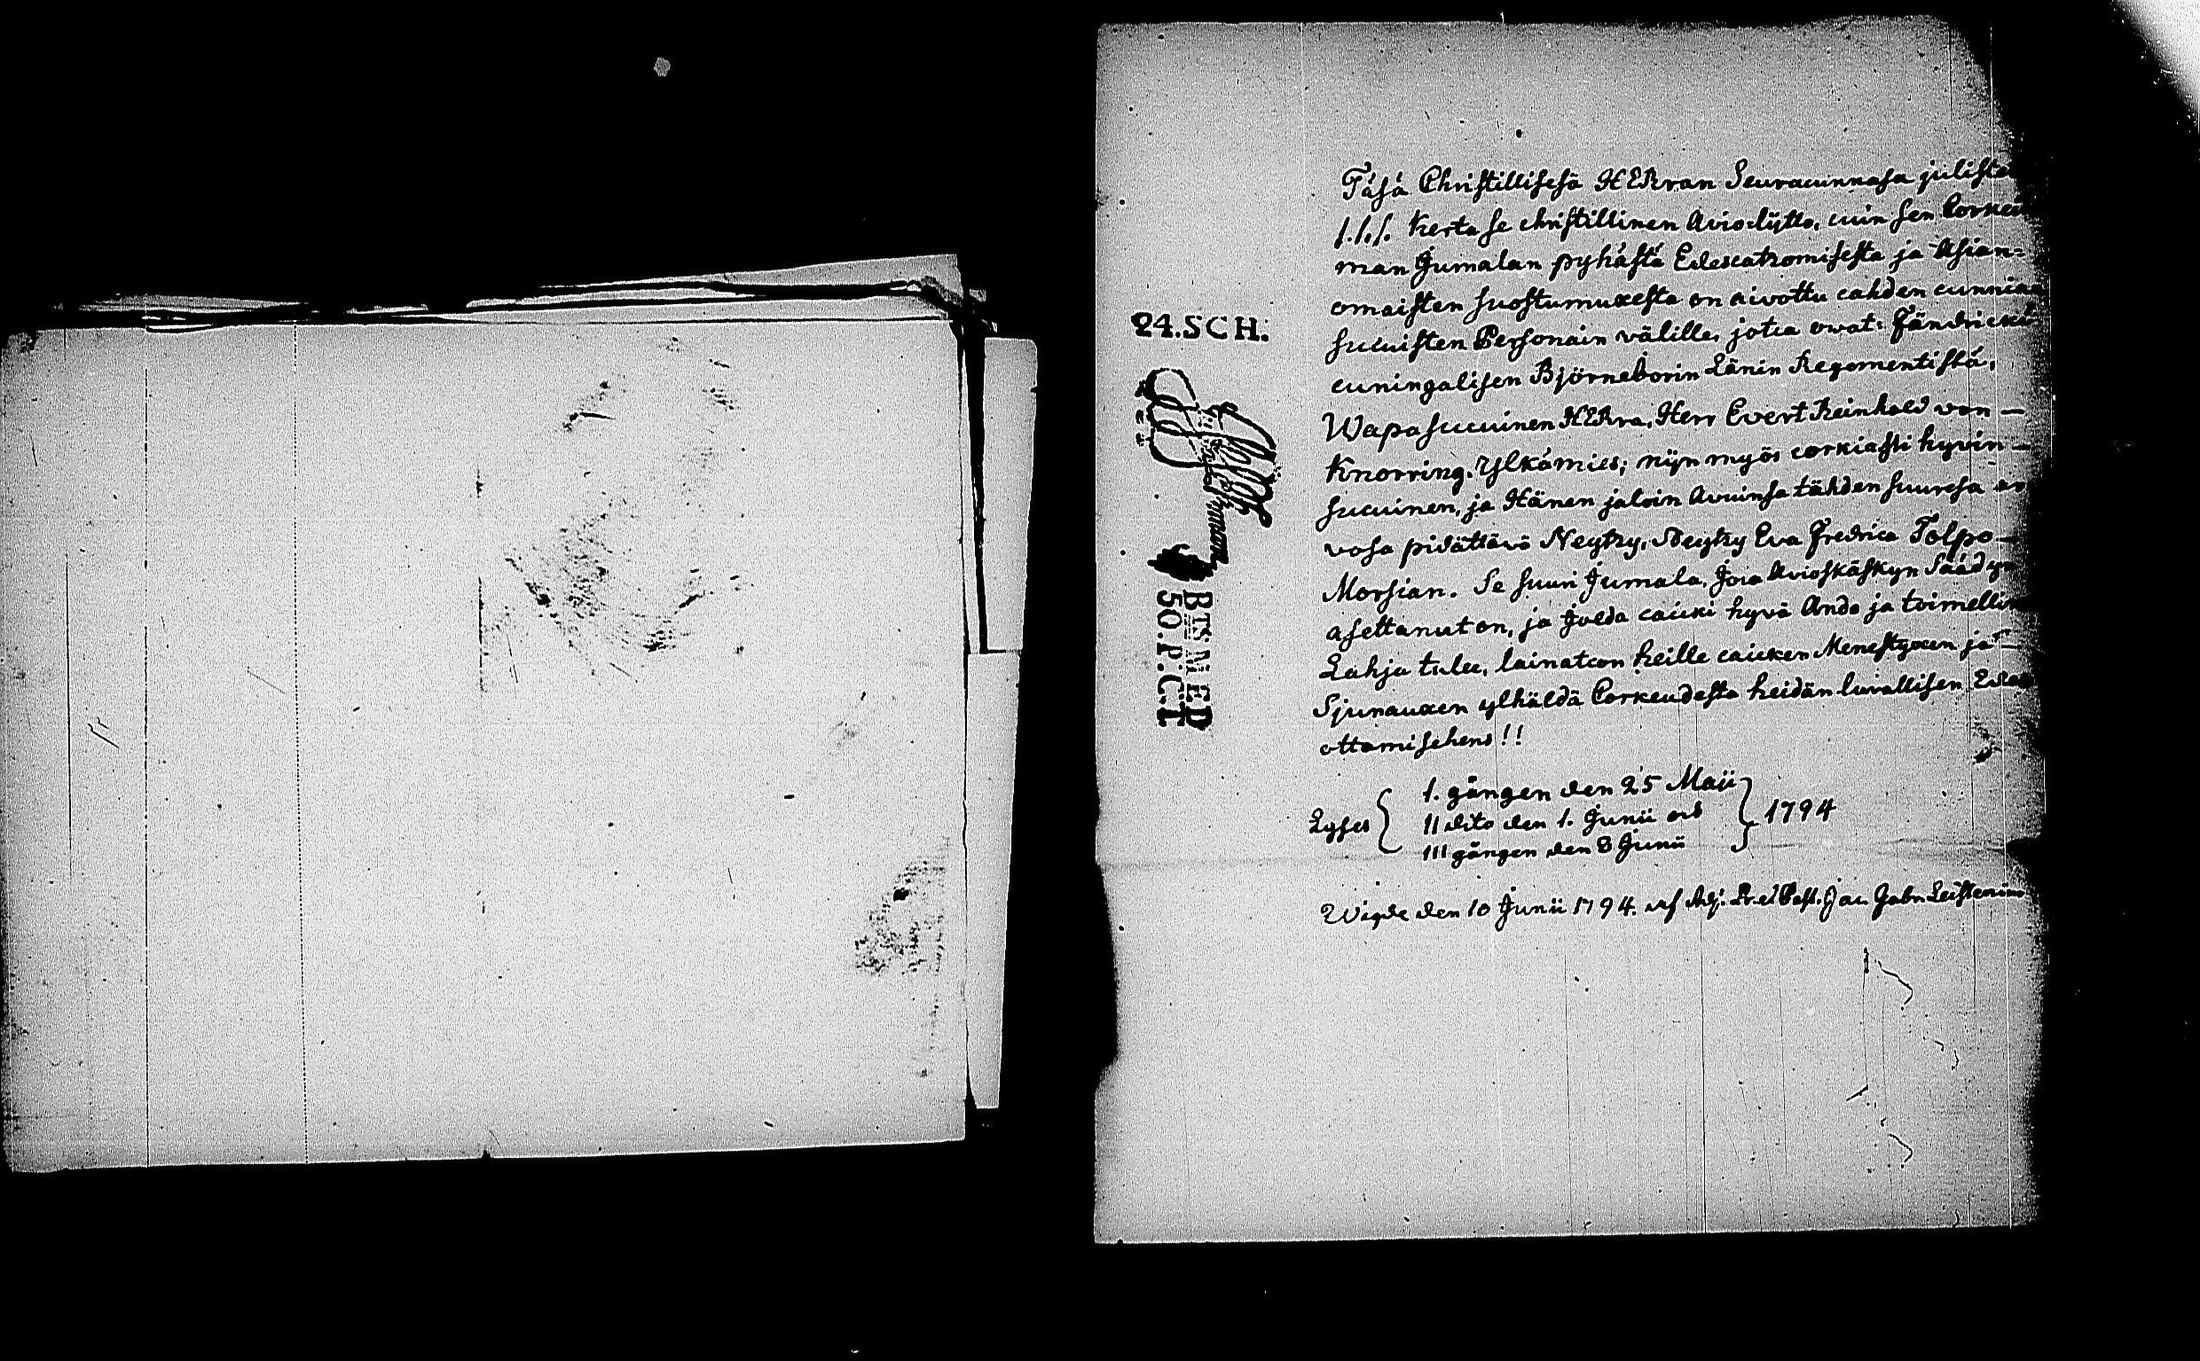 Täsä Christillisesä HERran Seuracunnasa julista
1.1.1. Kerta se christillinen Avio-lijtto, cuin sen Corkei
man Jumalan pyhästä Edescatzomisesta ja Asian=
omaisten suostumuxesta on aivottu cahden cunnia
sucuisten Personain välille, jotca owat: Fändricki
cuningalisen Björneborin Länin Regementistä,
Wapasucuinen HERra, Herr Evert Reinhold von —
Knorring, Ylkämies; nijn myös corkiasti hyvin —
sucuinen, ja Hänen jaloin Avuinsa tähden suuresa ar
vosa pidättävä Neytzy, Neytzy Eva Fredrica Tolpo —
Morsian. Se suuri Jumala, Joca Avioskäskyn Säädyn
asettanut on, ja Jolda caicki hyvä Ando ja toimellin
Lahja tulee, lainatcon heille caicken Menestyxen ja —
Sjunauxen ylhäldä Corkeudesta heidän luvallisen Edes
ottamisehens!!
24.SCH.
BTSMEP
50.P.C.T
Lyses
1. gången den 25 Maii
II dito den 1. Junii och
III gången den 8 Junii
1794
Wigde den 10 Junii 1794. af Adj. Pr. et Past. Jac. Gabr. Leistenius